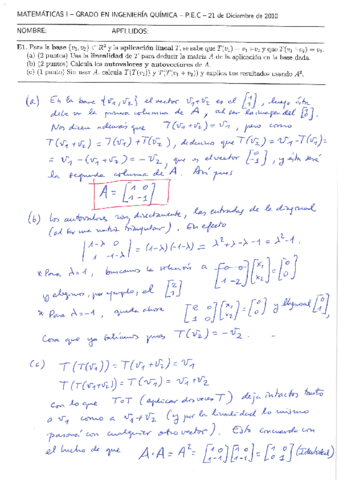 MATEMÁTICAS I – GRADO EN INGENIERÍA QUÍMICA – P.E.C – 21 de Diciembre de 2010
NOMBRE: APELLIDOS:
E1. Para la base {v₁, v₂} de ℝ² y la aplicación lineal T, se sabe que T(v₁) = v₁ + v₂ y que T(v₁ + v₂) = v₁.
(a) (2 puntos) Usa la linealidad de T para deducir la matriz A de la aplicación en la base dada.
(b) (2 puntos) Calcula los autovalores y autovectores de A.
(c) (1 punto) Sin usar A, calcula T(T(v₁)) y T(T(v₁ + v₂)) y explica tus resultados usando A².
(a) En la base {v₁, v₂} el vector v₁+v₂ es el [1 1], luego ésta
debe ser la primera columna de A, al ser la imagen del [1 0].
Nos dicen además que T(v₁+v₂) = v₁, pero como
T(v₁+v₂) = T(v₁) + T(v₂), deducimos que T(v₂) = v₁ - T(v₁) =
= v₁ - (v₁+v₂) = -v₂, que es el vector [0 -1], y ésta será
la segunda columna de A. Así pues
A = [1 0 1 -1]
(b) Los autovalores son, directamente, las entradas de la diagonal
(al ser una matriz triangular). En efecto
|1-λ 0 1 -1-λ| = (1-λ)(-1-λ) = λ²+λ-λ-1 = λ²-1.
* Para λ=1, buscamos la solución a [0 0 1 -2][x₁ x₂] = [0 0]
y elegimos, por ejemplo, el [2 1]
* Para λ=-1, queda ahora [2 0 1 0][x₁ x₂] = [0 0] y elegimos el [0 1],
cosa que ya sabíamos pues T(v₂) = -v₂.
(c) T(T(v₁)) = T(v₁+v₂) = v₁
T(T(v₁+v₂)) = T(v₁) = v₁+v₂
con lo que T∘T (aplicar dos veces T) deja intactos tanto
a v₁ como a v₁+v₂ (y por la linealidad lo mismo
pasará con cualquier otro vector). Esto concuerda con
el hecho de que A·A = A² = [1 0 1 -1][1 0 1 -1] = [1 0 0 1] (Identidad)